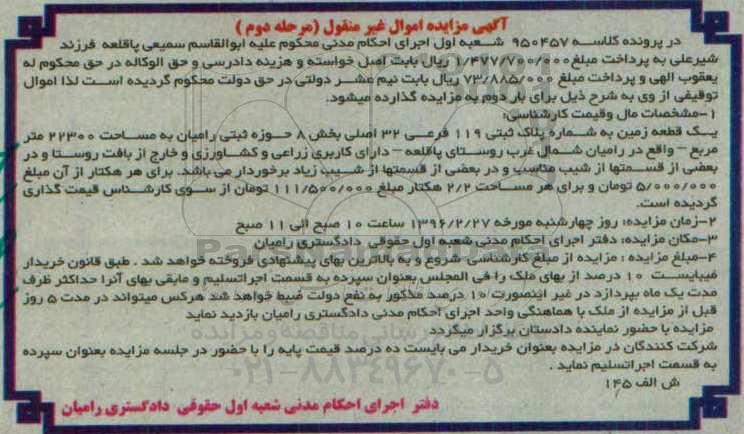 آگهی مزایده اموال غیر منقول (مرحله دوم )
در پرونده کلاسه ۹۵۰۴۵۷ شعبه اول اجرای احکام مدنی محکوم علیه ابوالقاسم سمیعی پاقلعه فرزند
شیرعلی به پرداخت مبلغ ۱/۴۷۷/۷۰۰/۰۰۰ ریال بابت اصل خواسته و هزینه دادرسی و حق الوکاله در حق محکوم له
یعقوب الهی و پرداخت مبلغ ۷۳/۸۸۵/۰۰۰ ریال بابت نیم عشر دولتی در حق دولت محکوم گردیده است لذا اموال
توقیفی از وی به شرح ذیل برای بار دوم به مزایده گذارده میشود.
۱-مشخصات مال وقیمت کارشناسی:
یک قطعه زمین به شماره پلاک ثبتی ۱۱۹ فرعی ۳۲ اصلی بخش ۸ حوزه ثبتی رامیان به مساحت ۲۲۳۰۰ متر
مربع – واقع در رامیان شمال غرب روستای پاقلعه – دارای کاربری زراعی و کشاورزی و خارج از بافت روستا و در
بعضی از قسمتها از شیب مناسب و در بعضی از قسمتها از شیب زیاد برخوردار می باشد. برای هر هکتار از آن مبلغ
۵/۰۰۰/۰۰۰ تومان و برای هر مساحت ۲/۲ هکتار مبلغ ۱۱۱/۵۰۰/۰۰۰ تومان از سوی کارشناس قیمت گذاری
گردیده است.
۲-زمان مزایده: روز چهارشنبه مورخه ۱۳۹۶/۲/۲۷ ساعت ۱۰ صبح الی ۱۱ صبح
۳-مکان مزایده: دفتر اجرای احکام مدنی شعبه اول حقوقی دادگستری رامیان
۴-مبلغ مزایده : مزایده از مبلغ کارشناسی شروع و به بالاترین بهای پیشنهادی فروخته خواهد شد . طبق قانون خریدار
میبایست ۱۰ درصد از بهای ملک را فی المجلس بعنوان سپرده به قسمت اجراتسلیم و مابقی بهای آنرا حداکثر ظرف
مدت یک ماه بپردازد در غیر اینصورت ۱۰ درصد مذکور به نفع دولت ضبط خواهد شد هرکس میتواند در مدت ۵ روز
قبل از مزایده از ملک با هماهنگی واحد اجرای احکام مدنی دادگستری رامیان بازدید نماید
مزایده با حضور نماینده دادستان برگزار میگردد
شرکت کنندگان در مزایده بعنوان خریدار می بایست ده درصد قیمت پایه را با حضور در جلسه مزایده بعنوان سپرده
به قسمت اجراتسلیم نماید .
ش الف ۱۴۵
دفتر اجرای احکام مدنی شعبه اول حقوقی دادگستری رامیان
۰۲۱-۸۸۳۴۹۶۷۰-۵